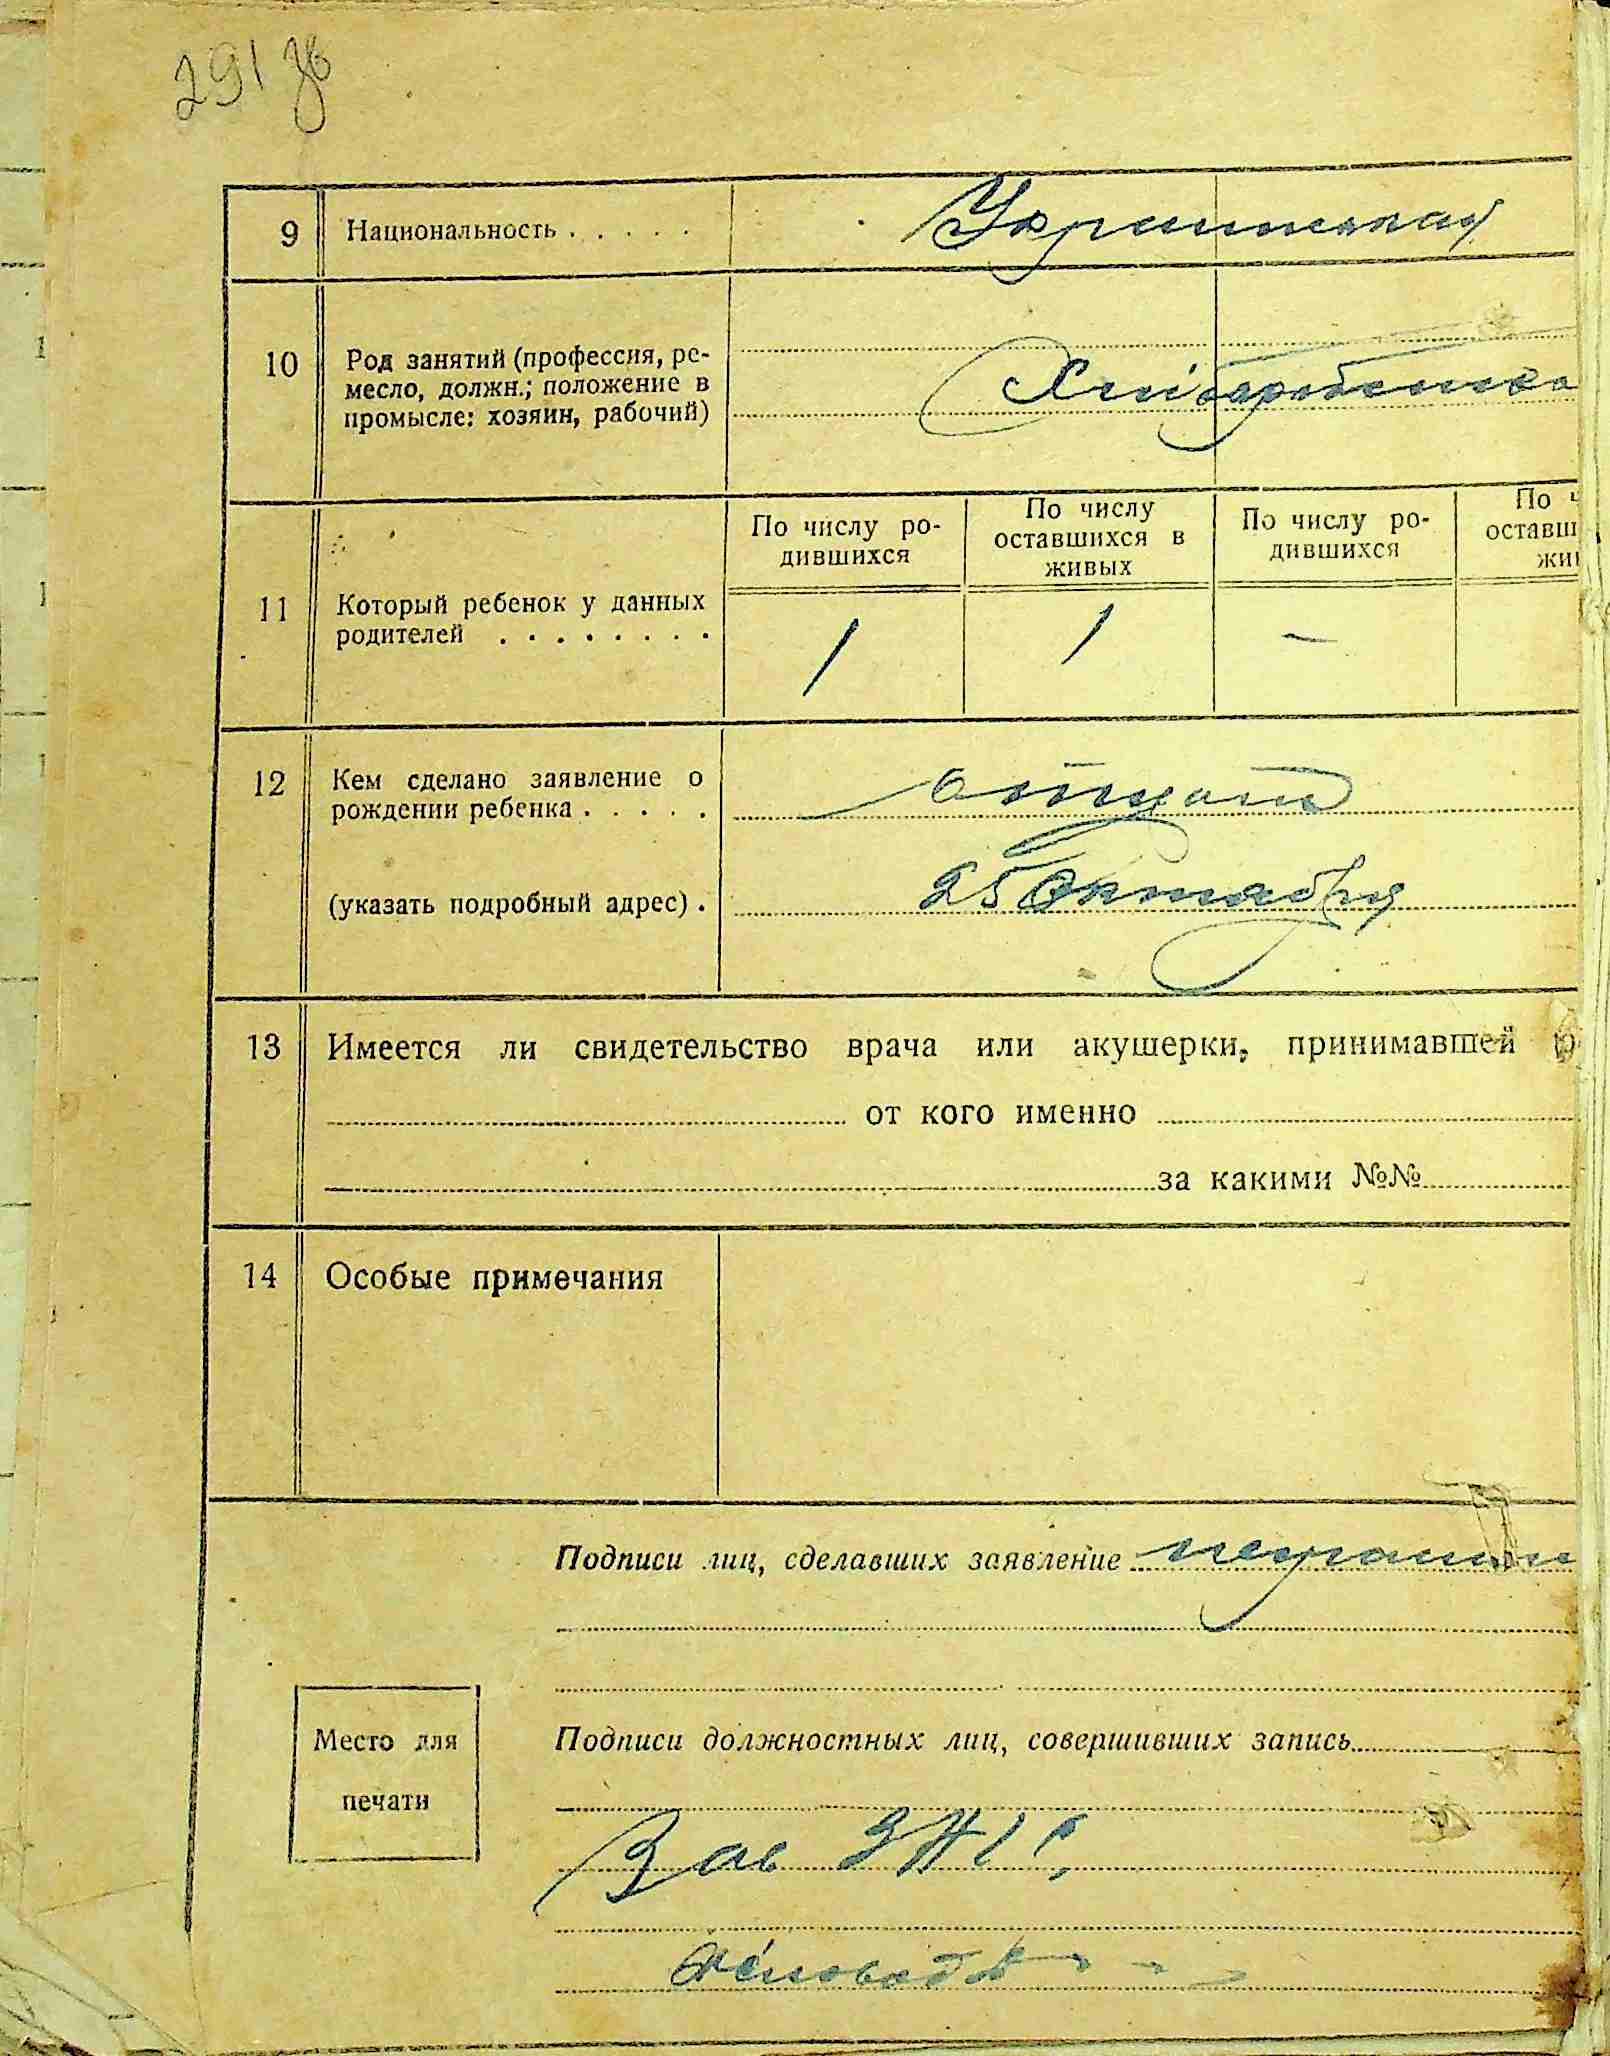 291 зв
9 Национальность . . . . . Украинская
10 Род занятий (профессия, ре-
месло, должн.; положение в
промысле: хозяин, рабочий)
По числу ро-
дившихся
По числу
оставшихся в
живых
По числу ро-
дившихся
По ч
оставш
жи
11 Который ребенок у данных
родителей . . . . . . . . 1 1 —
12 Кем сделано заявление о
рождении ребенка . . . . . отцом
(указать подробный адрес) . 25 Октября
13 Имеется ли свидетельство врача или акушерки, принимавшей р
от кого именно
за какими №№
14 Особые примечания
Подписи лиц, сделавших заявление неграмотн
Место для
печати
Подписи должностных лиц, совершивших запись
Зав ЗАГС
Деловод